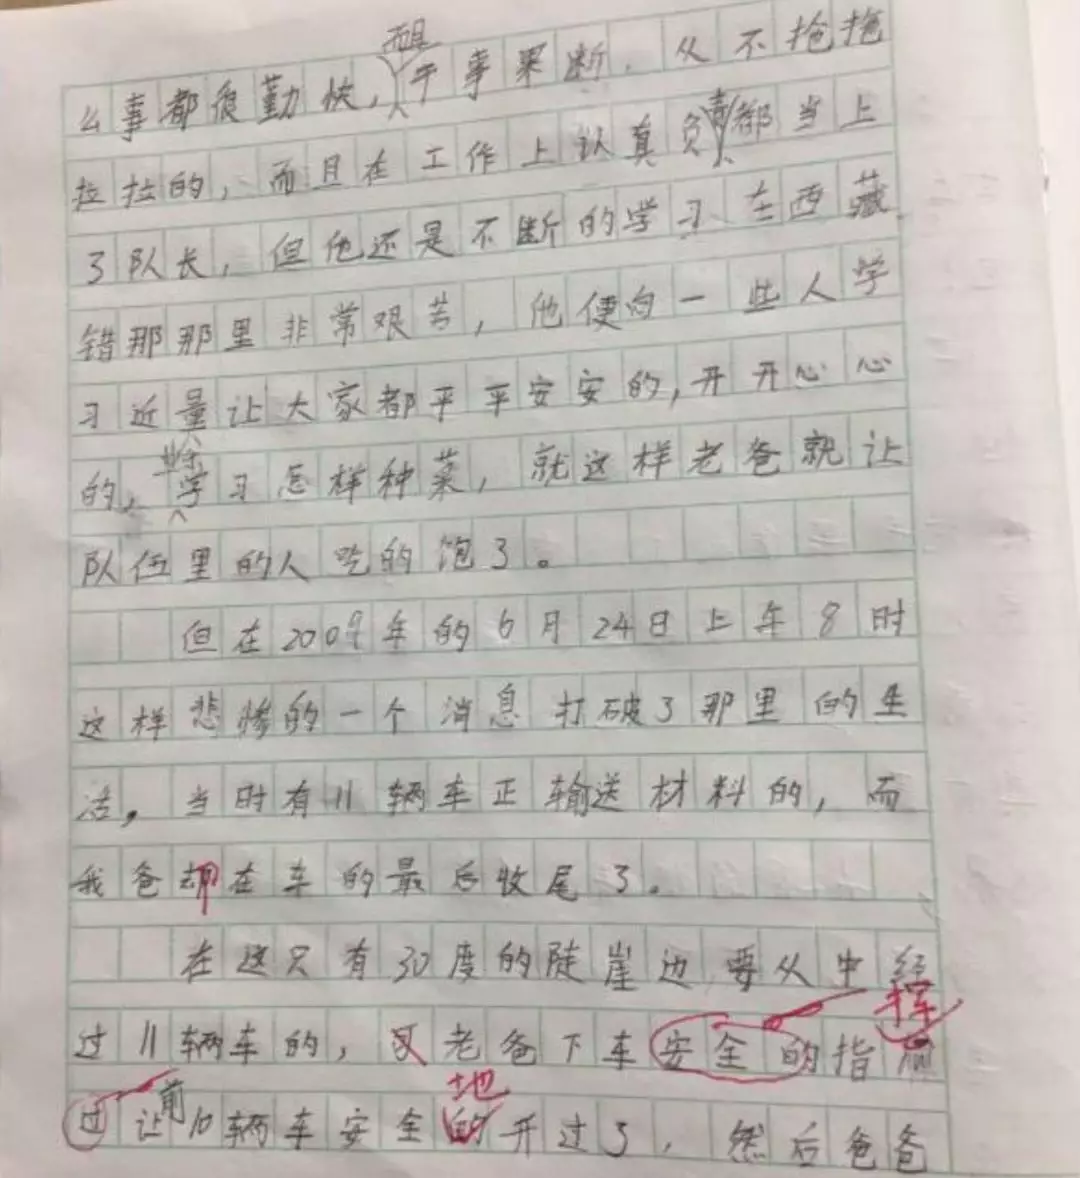 而且
么事都很勤快，干事果断，从不拖拖
拉拉的，而且在工作上认真负责，都当上
了队长，但他还是不断的学习，在西藏
错那那里非常艰苦，他便向一些人学
习近量让大家都平平安安的，开开心心
的，学习怎样种菜，就这样老爸就让
队伍里的人吃的饱了。
但在2009年的6月24日上午8时
这样悲惨的一个消息打破了那里的生
活。当时有11辆车正输送材料的，而
我爸却在车的最后收尾了。
在这只有30度的陡崖边要从中经
挥
过11辆车的，老爸下车安全的指
地
过让前10辆车安全的开过了，然后爸爸